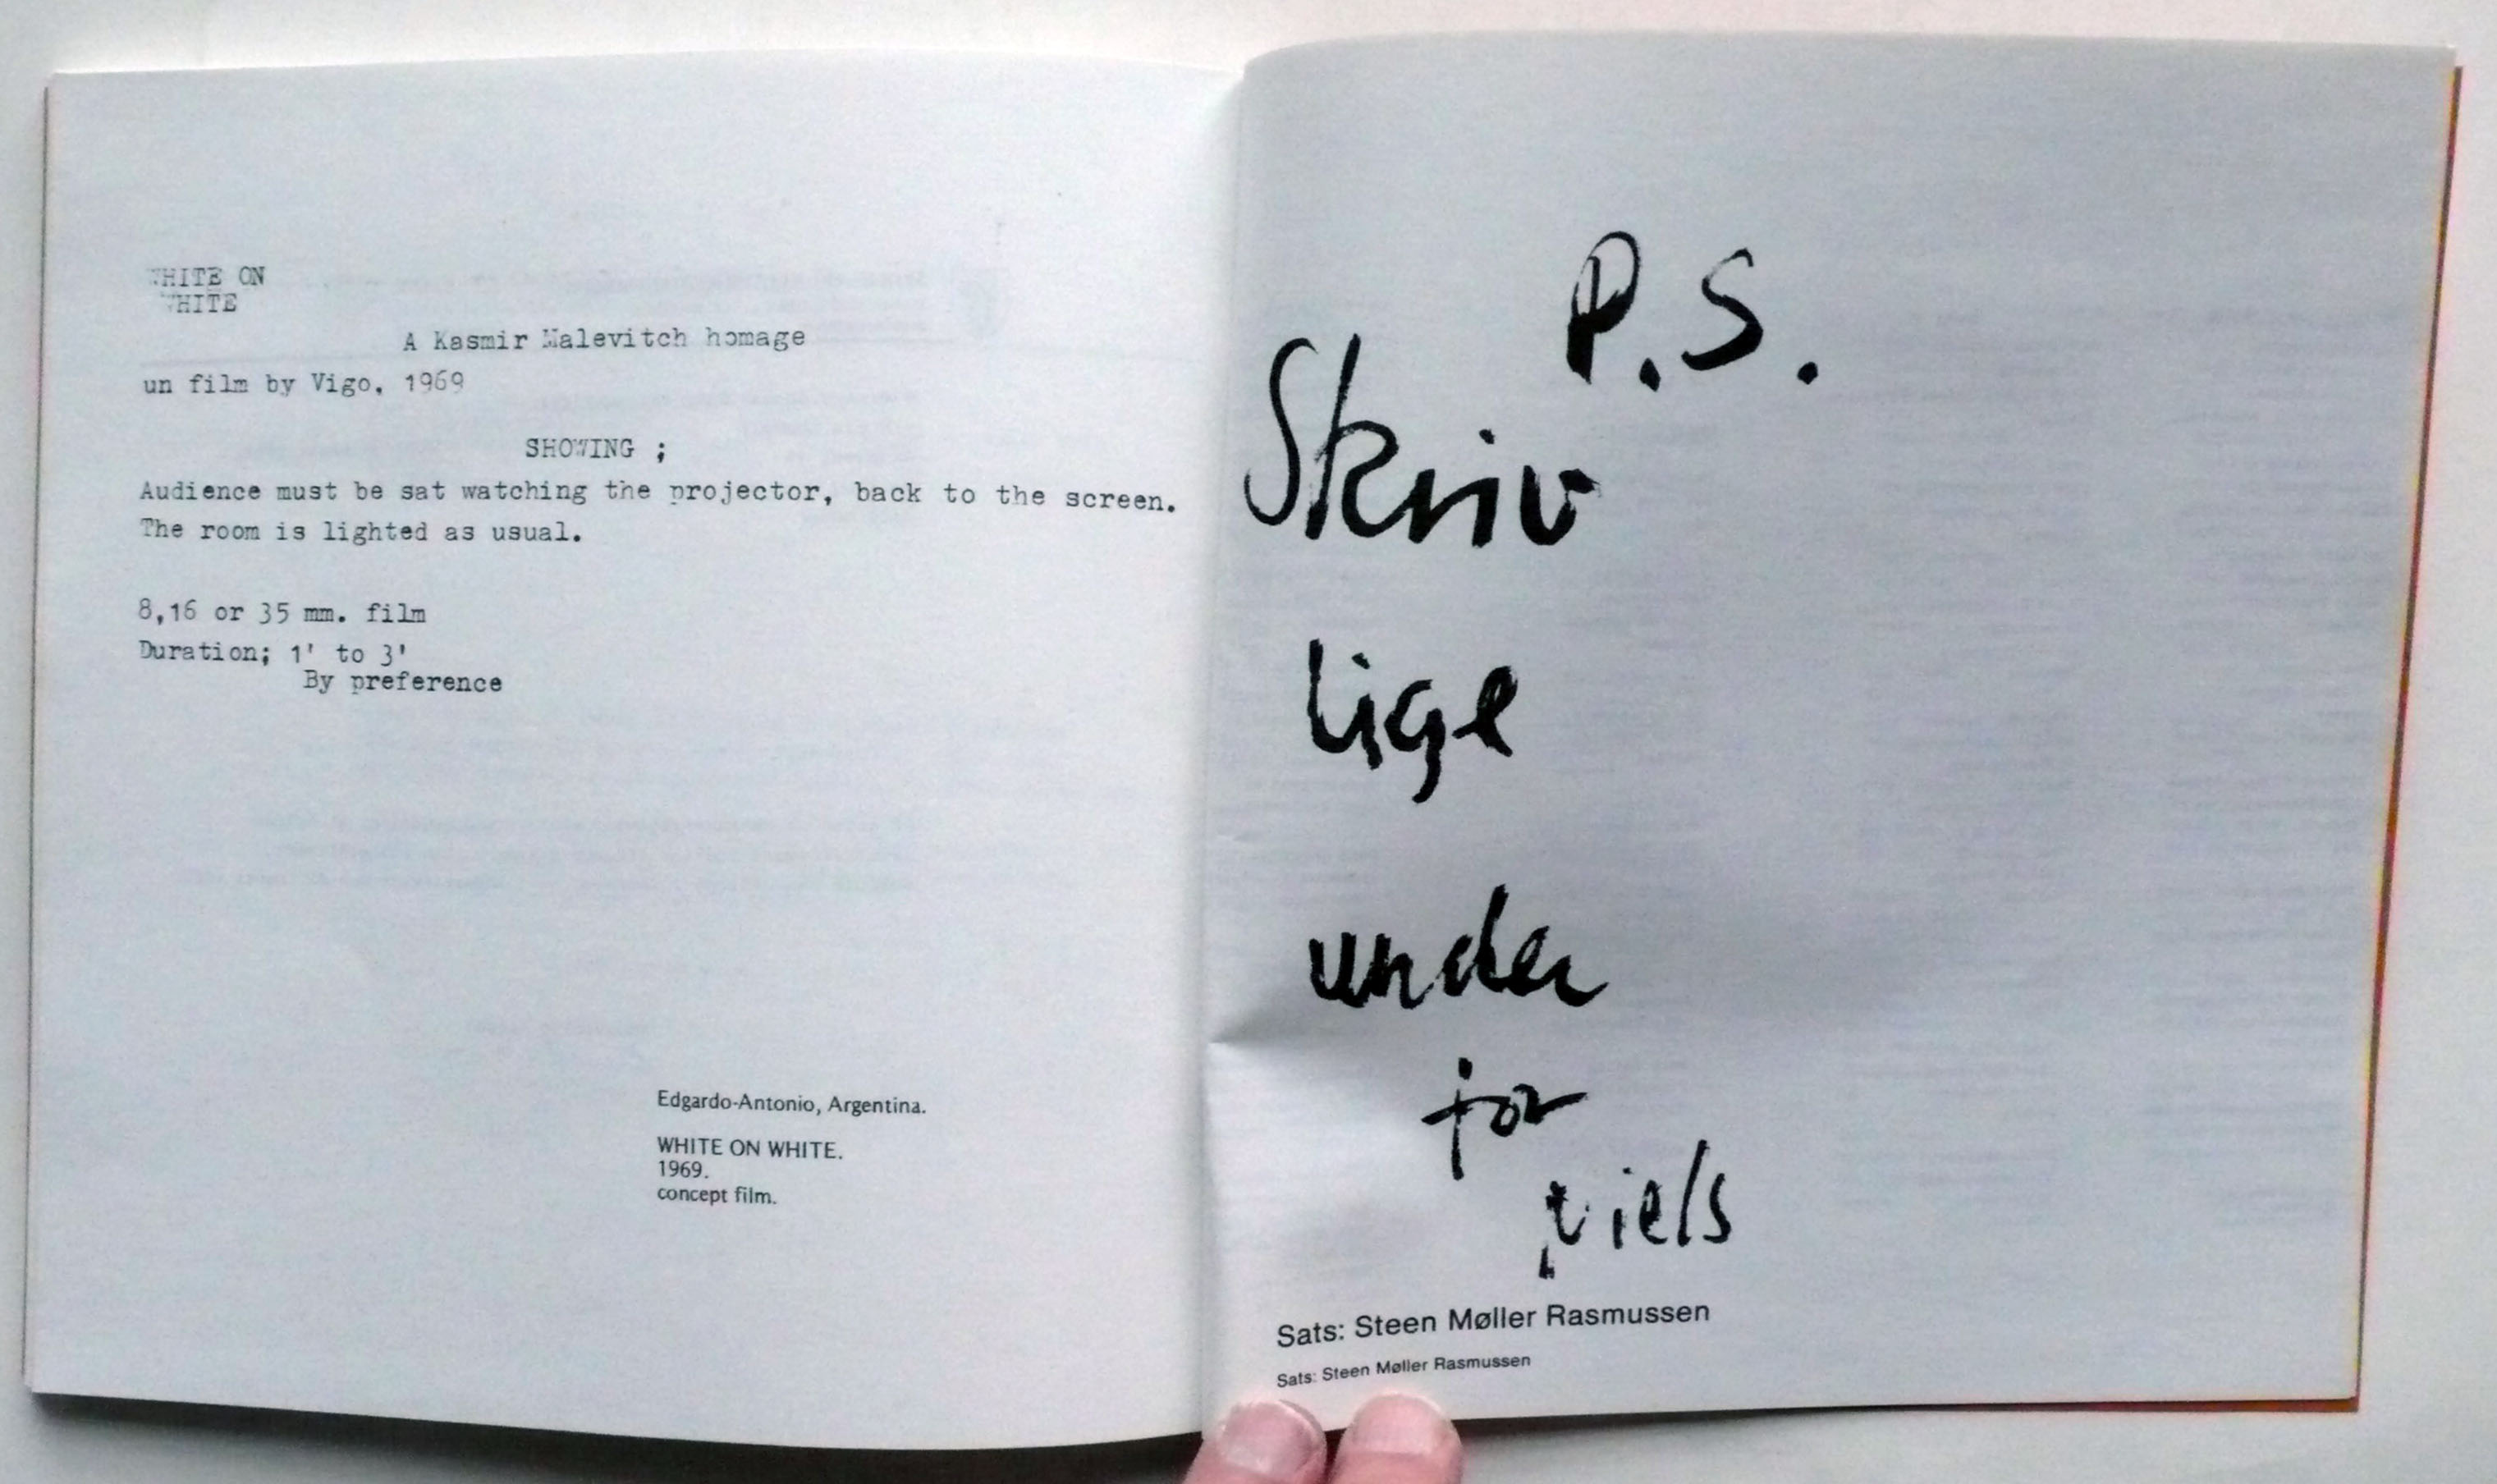 WHITE ON
WHITE
A Kasmir Malevitch homage
un film by Vigo, 1969
SHOWING ;
Audience must be sat watching the projector, back to the screen.
The room is lighted as usual.
8,16 or 35 mm. film
Duration; 1' to 3'
By preference
Edgardo-Antonio, Argentina.
WHITE ON WHITE.
1969.
concept film.
P.S.
Skriv
lige
under
for
niels
Sats: Steen Møller Rasmussen
Sats: Steen Møller Rasmussen